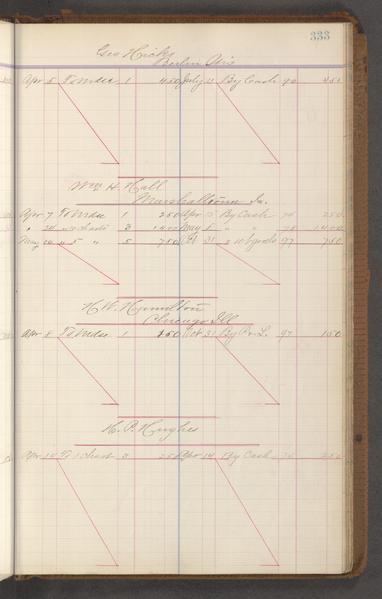 333
Geo Hicks
Berlin Wis
Apr 5 To Mdse 1 450 July 11 By Cash 90 450
Wm H. Hall
Marshalltown Ia.
Apr 7 To Mdse 1 250 Apr By Cash 76 250
" 24 " 3 1400 May 1 " " 78 1400
May " 5 " 5 750 Oct 31 " 97 750
H. W. Hamilton
Chicago Ill
Apr 8 To Mdse 1 150 Oct 31 By P. L. 97 150
H. P. Hughes
Apr 14 To 1 chest 3 250 Apr 14 By Cash 76 250